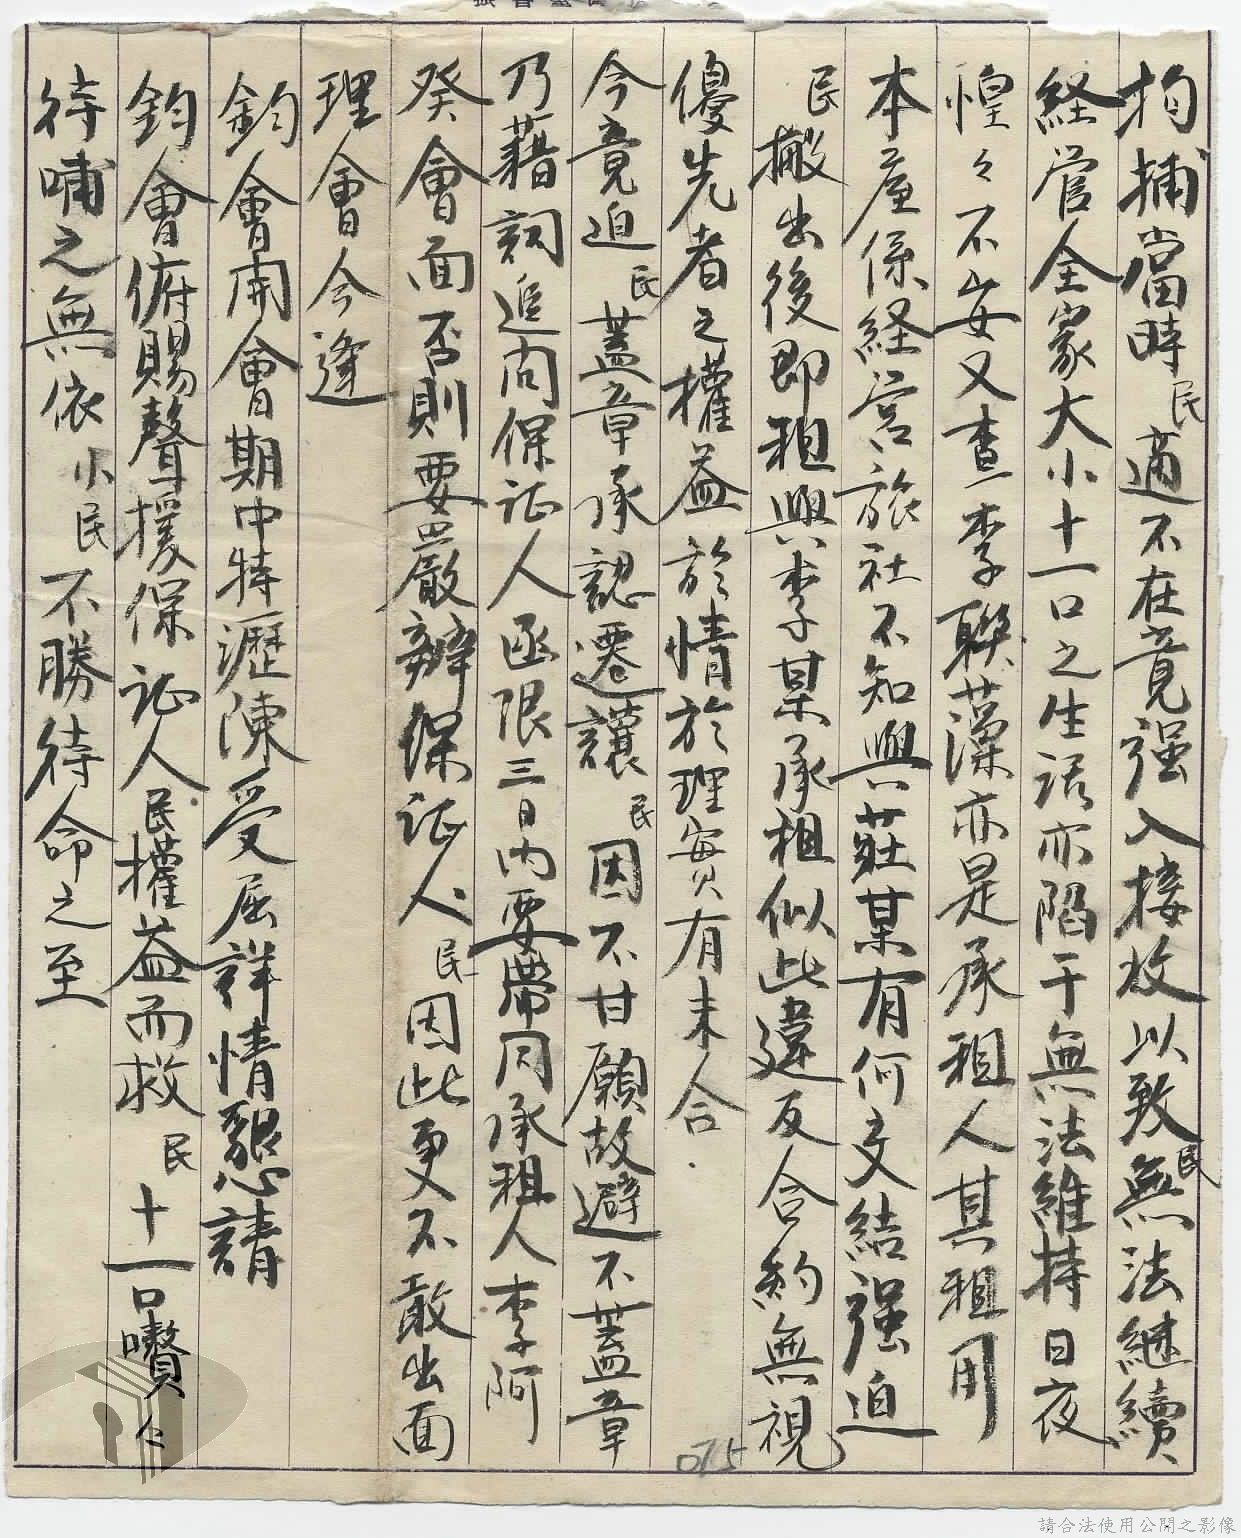 拘捕當時民適不在竟强入接收以致民無法継續
経营全家大小十一口之生活亦陷于無法維持日夜
惶々不安又查李聯藻亦是承租人其租用
本座係経营旅社不知與莊某有何交結强迫
民搬出後即租與李某承租似此違反合約無視
優先者之權益於情於理實有未合.
今竟迫民蓋章承認遷讓民因不甘願故避不蓋章
乃藉詞追问保証人函限三日内要帶同承租人李阿
癸會面否則要嚴辦保証人民因此更不敢出面
理會今逢
鈞會開會期中特瀝陳受屈詳情懇請
鈞會俯賜聲援保証人民權益而救民十一口嗷々
待哺之無依小民不勝待命之至
075
請合法使用公開之影像